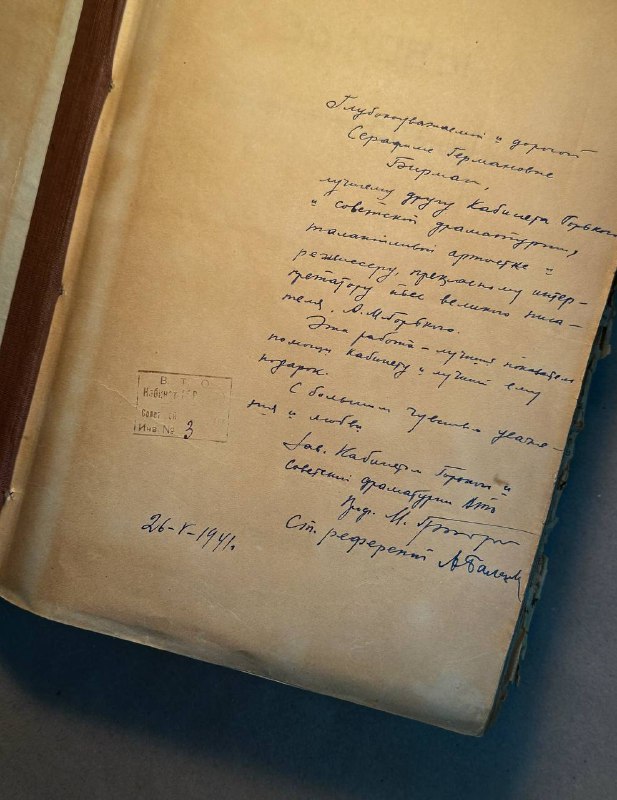 Глубокоуважаемой и дорогой
Серафиме Германовне
Бирман,
лучшему другу Кабинета Горького
и советской драматургии
талантливой артистке и
режиссеру, прекрасному интер-
претатору пьес великого писа-
теля, А.М.Горького.
Эта работа – лучший показатель
помощи Кабинету и лучший ему
подарок.
С большим чувством уваже-
ния и любви
Зав. Кабинетом Горького и
Советской драматургии ВТО
Проф. М.
Ст. референт
26-V-1941г.
ВТО
Кабинет
Совет
Инв. № 3